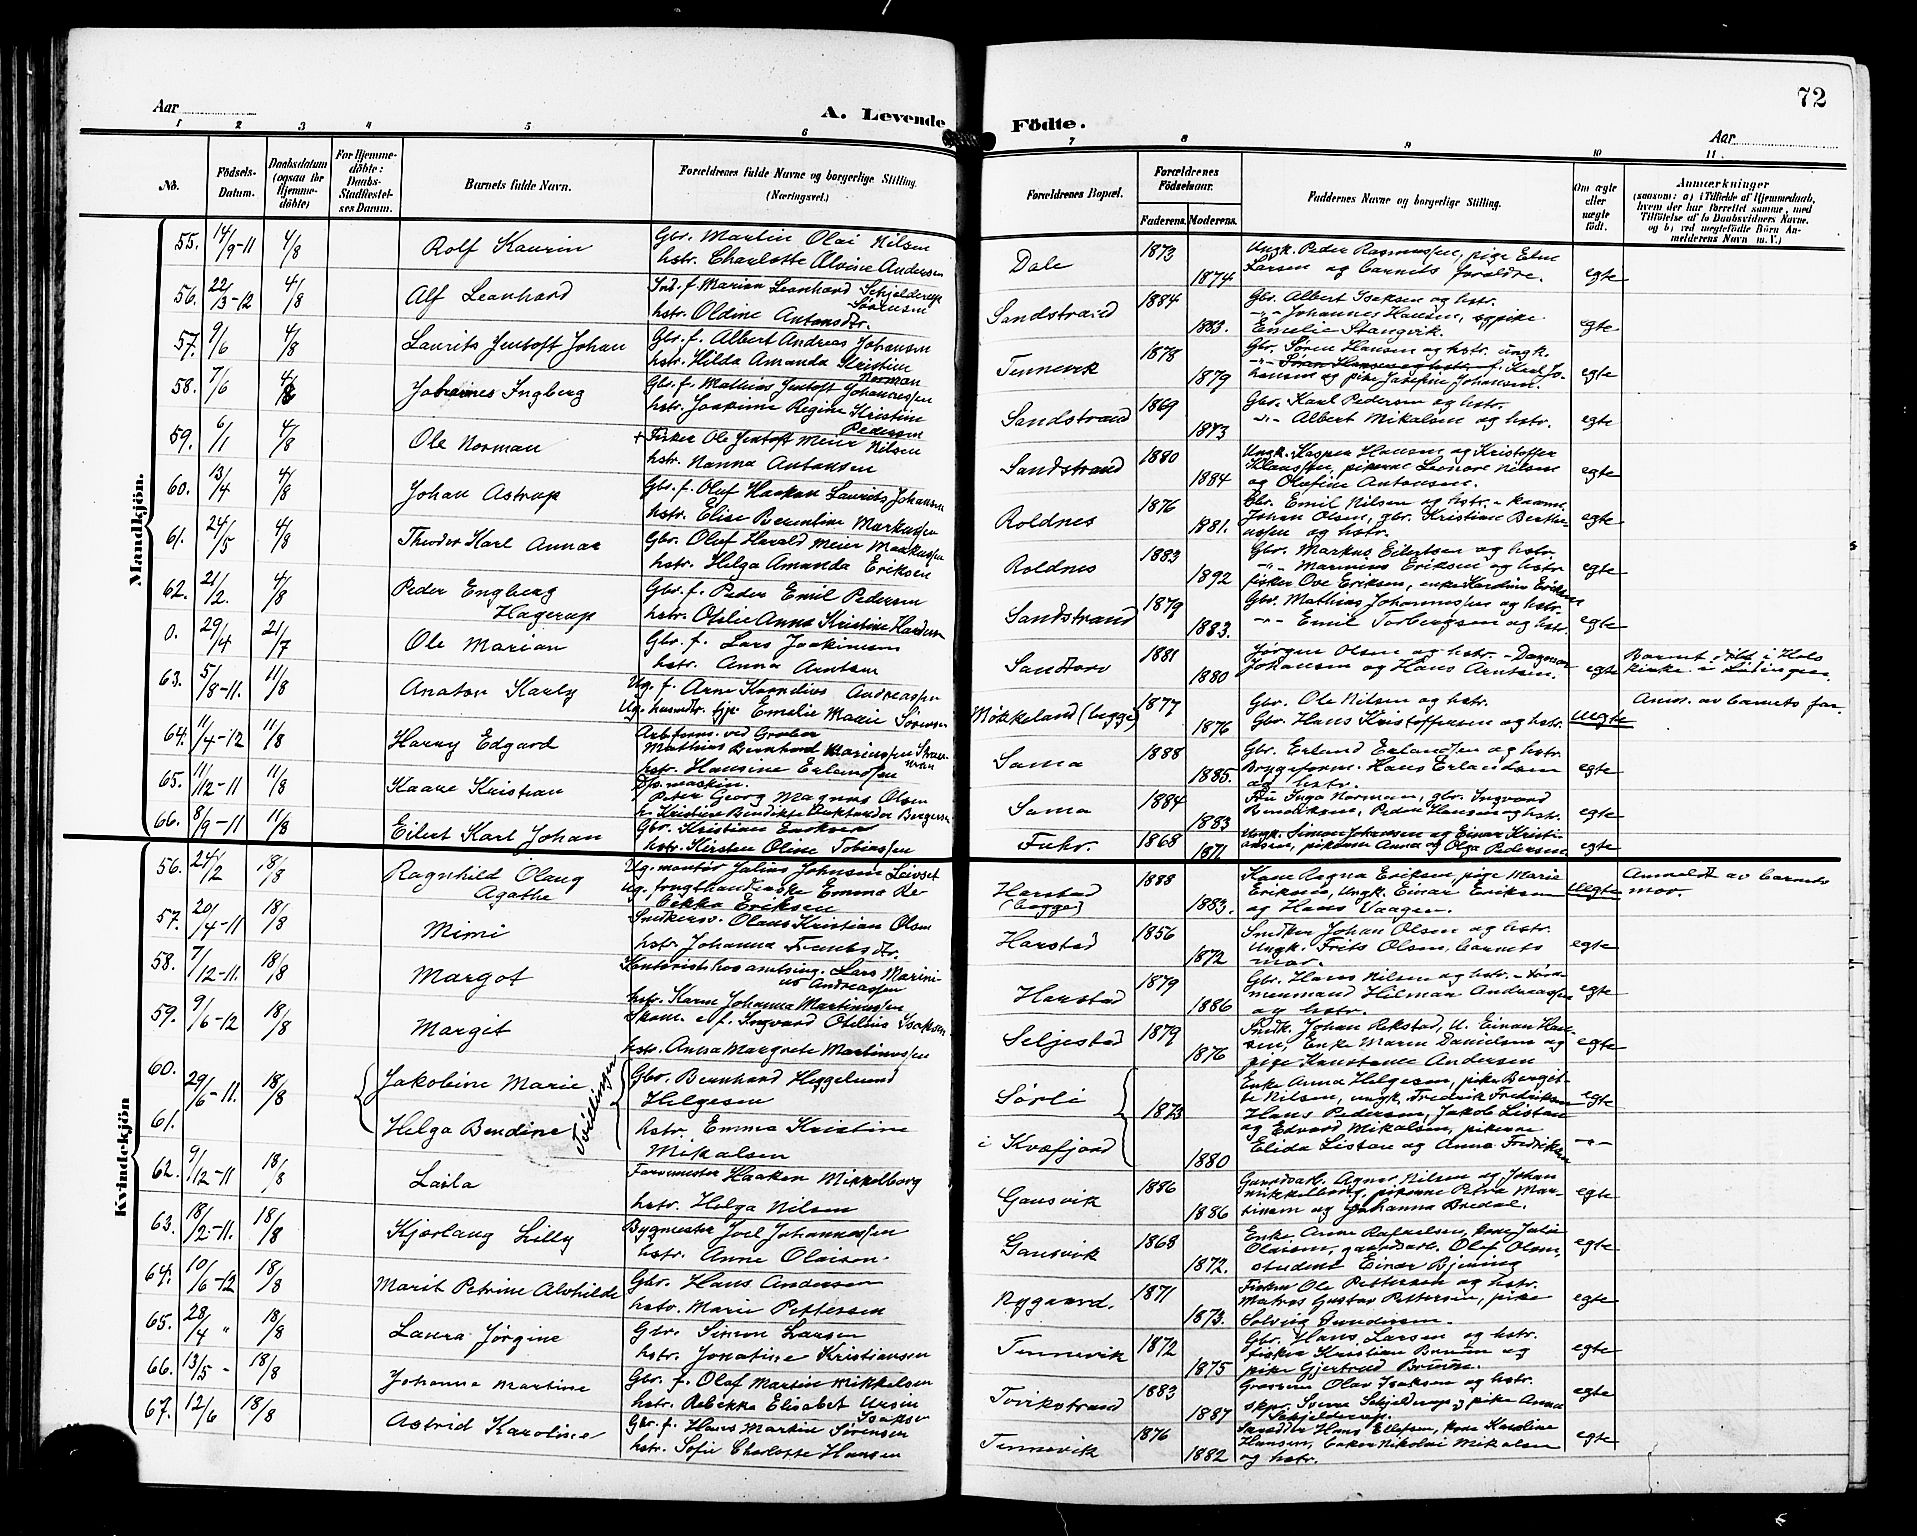 72
Aar
A. Levende
Födte.
Aar
1 2 3 4 5 6 7 8 9 10 11.
No.
Födsels-Datum.
Daabsdatum (ogsaa for Hjemme-döbte)
For Hjemme-döbte: Daabs-Stadfæstel-ses Datum.
Barnets fulde Navn.
Forældrenes fulde Navne og borgerlige Stilling. (Næringsvei.)
Forældrenes Bopæl.
Forældrenes Födselsaar.
Faderens. Moderens.
Faddernes Navne og borgerlige Stilling.
Om ægte eller uægte födt.
Anmærkninger
(saasom: a) i Tilfælde af Hjemmedaab,
hvem der har forrettet samme, med
Tilföielse af to Daabsvidners Navne,
og b) ved uægtefödte Börn An-
melderens Navn m. V.)
Mandkjön.
55. 14/9-11 4/8 Rolf Kaurin Gbr. Martin Olai Nilsen
hstr. Charlotte Alvine Andersen
Dale 1873 1874. Ungk. Peder Rasmussen, pige Elen
Larsen og barnets forældre. egte
56. 22/3-12 4/8 Alf Leonhard Ind. f. Marian Leonhard Schjelderup
Sørensen
hstr. Oldine Antonsdtr.
Sandstrand 1884 1883. Gbr. Albert Isaksen og hstr.
-"- Johannes Hansen, og pike
Emelie Stangvik. egte
57. 9/6 4/8 Laurits Jentoft Johan Gbr. f. Albert Andreas Johansen
hstr. Hilda Amanda Kristine
Norman
Tennevik 1878 1879 Gbr. Søren Hansen og hstr. ungk.
hansen og pike Josefine Johansen. egte
58. 7/6 4/8 Johannes Ingberg Gbr. f. Mathias Jentoft Johannessen
hstr. Joakime Regine Kristine
Pedersen
Sandstrand 1869 1873 Gbr. Karl Pedersen og hstr.
-"- Albert Mikalsen og hstr. egte
59. 6/1 4/8 Ole Norman + Fisker Ole Jentoft Meier Nilsen
hstr. Nanna Antonsen
Sandstrand 1880 1884 Ungk. Kasper Hansen og Kristoffer
Klaussen, pikerne Leonore Nilsen
og Olafine Antonsen. egte
60. 13/4 4/8 Johan Astrup Gbr. f. Oluf Haakon Laurits Johansen
hstr. Elise Berentine Markussen
Roldnes 1876 1881. Gbr. Emil Nilsen og hstr.
Johan Olsen, gbr. Kristian Berthe-
ussen og hstr. egte
61. 24/5 4/8 Theodor Karl Annar Gbr. Oluf Harald Meier Markussen
hstr. Helga Amanda Eriksen
Roldnes 1883 1892 Gbr. Markus Eilertsen og hstr.
-"- Marinius Eriksen og hstr
fisker Ove Eriksen, enke Eriksen egte
62. 21/2. 4/8 Peder Engberg
Hagerup Gbr. f. Peder Emil Pedersen
hstr. Otelie Anna Kristine Hansen
Sandstrand 1879 1883. Gbr. Mathias Johannessen og hstr.
-"- Emil Torbergsen og hstr. egte
0. 29/4 21/7 Ole Marian Gbr. f. Lars Joakimsen
hstr. Anna Arntsen
Sandtorv 1881 1880 Jørgen Olsen og hstr. - Dagmar
Johansen og Hans Arntsen. egte Barnet døbt i Hols
kirke i Lødingen.
63. 5/8-11. 11/8 Anaton Karly Ug. f. Arne Kornelius Andreassen
Ug. husmdtr. tjp. Emelie Marie Sørensen
Møkkeland (begge) 1877 1876 Gbr. Ole Nilsen og hstr.
Gbr. Hans Kristoffersen og hstr. Uegte Anm. av barnets far.
64. 11/4-12 11/8 Harry Edgard Arbform. ved Gruber
Mathias Bernhard Mariussen Strøm-
man
hstr. Hansine Erlandsen
Sama 1888 1885. Gbr. Erlend Erlandsen og hstr.
Bryggeform. Hans Erlandsen
og hstr. egte
65. 11/12-11 11/8 Kaare Kristian Dks. maskin.
Peter Georg Magnus Olsen
h. Kristine Bendikte Bergersen
Sama 1884 1883 Fru Inga Norman, gbr. Ingvard
Bendiksen, Peder Hansen og hstr. egte
66. 8/9-11 11/8 Eilert Karl Johan Gbr. Kristian Eriksen
hstr. Kirsten Oline Tobiassen
Fuhr. 1868 1871 Ungk. Simon Johansen og Einar Kristi-
ansen, pikerne Anna og Olga Pedersen egte
Kvindekjön
56. 24/2 18/8 Ragnhild Olaug
Agathe Ug. montør Julius Johnsen Leivset
Ug. frugthandlerske Emma Re-
bekka Eriksen
Harstad
(begge) 1888 1883. Kone Ragna Eriksen, pige Marie
Eriksen, Ungk. Einar Eriksen
og Hans Vaagen. Uegte Anmeldt av barnets
mor.
57. 20/4-11 18/8 Mimi Snedkersv. Olaus Kristian Olsen
hstr. Johanna Jakobsdtr.
Harstad 1856 1872 Snedker Johan Olsen og hstr.
Ungk. Frits Olsen, barnets
mor. egte
58. 7/12-11. 18/8 Margot Kontorist hos amtsing. Lars Marini-
us Andreassen
hstr. Karen Johanna Martinussen
Harstad 1879 1886 Gbr. Hans Nilsen og hstr.
Hilmar Andreassen
og hstr. egte
59. 9/6-12 18/8 Margit Skom. e. f. Ingvard Otelius Isaksen
hstr. Anna Margrete Martinussen
Seljestad 1879 1876 Snedk. Johan Rikstad, U. Einar Han-
sen, Enke Maren Danielsen og
pige Konstanse Andersen egte
60. 29/6-11. 18/8 Jakobine Marie
61. Helga Bendine Tvillinger
Gbr. Bernhard Heggelund
Helgesen
hstr. Emma Kristine
Mikalsen
Sørli
i Kvæfjord 1873 1880 Enke Anna Helgesen, pike Bergit-
te Nilsen, ungk. Fredrik Fredriksen
Hans Pedersen, Jakob Listau
og Edvard Mikalsen, pikerne
Elida Listau og Anna Fredriksen egte -"-
62. 9/12-11 18/8 Laila Farvemester Haaken Mikkelborg
hstr. Helga Nilsen
Gansvik 1886 1886 Gaardsarb. Agner Nilsen og Johan
Mikkelborg, pikerne Petra Mar-
tinsen og Johanna Bredal. egte
63. 18/12-11. 18/8 Kjørlaug Lilly Bygmester Joel Johannessen
hstr. Anne Olaisen.
Gansvik 1868 1872. Enke Anne Rafaelsen, kone Julie
Olaisen, gaardsarb. Olaf Olsen,
student Einar Bjering egte
64. 10/6-12 18/8 Marit Petrine Alvhilde Gbr. Hans Andersen
hstr. Marie Pettersen
Nygaard. 1871 1873. Fisker Ole Pettersen og hstr.
Matros Gustav Pettersen, pike
Solveig Gundersen. egte
65. 28/4 " 18/8 Laura Jørgine Gbr. Simon Larsen
hstr. Jonatine Kristiansen
Tennevik 1872 1875 Gbr. Hans Larsen og hstr.
fisker Kristian Bruun og
pike Gjertrud Bruun. egte
66. 13/5 - 18/8 Johanna Martine Gbr. f. Olaf Martin Mikkelsen
hstr. Rebekka Elisabet Ursin
Isaksen
Tovikstrand 1883 1887 Grosserer Olav Isaksen og hstr.
skpr. Sverre Schjelderup, pike Anna
Schjelderup. egte
67. 12/6 18/8 Astrid Karoline Gbr. f. Hans Martin Sørensen
hstr. Sofie Charlotte Hansen
Tennevik 1876 1882 Skrædder Hans Ellefsen, kone Karoline
Hansen, Enker Nikolai Mikalsen
og hstr. egte